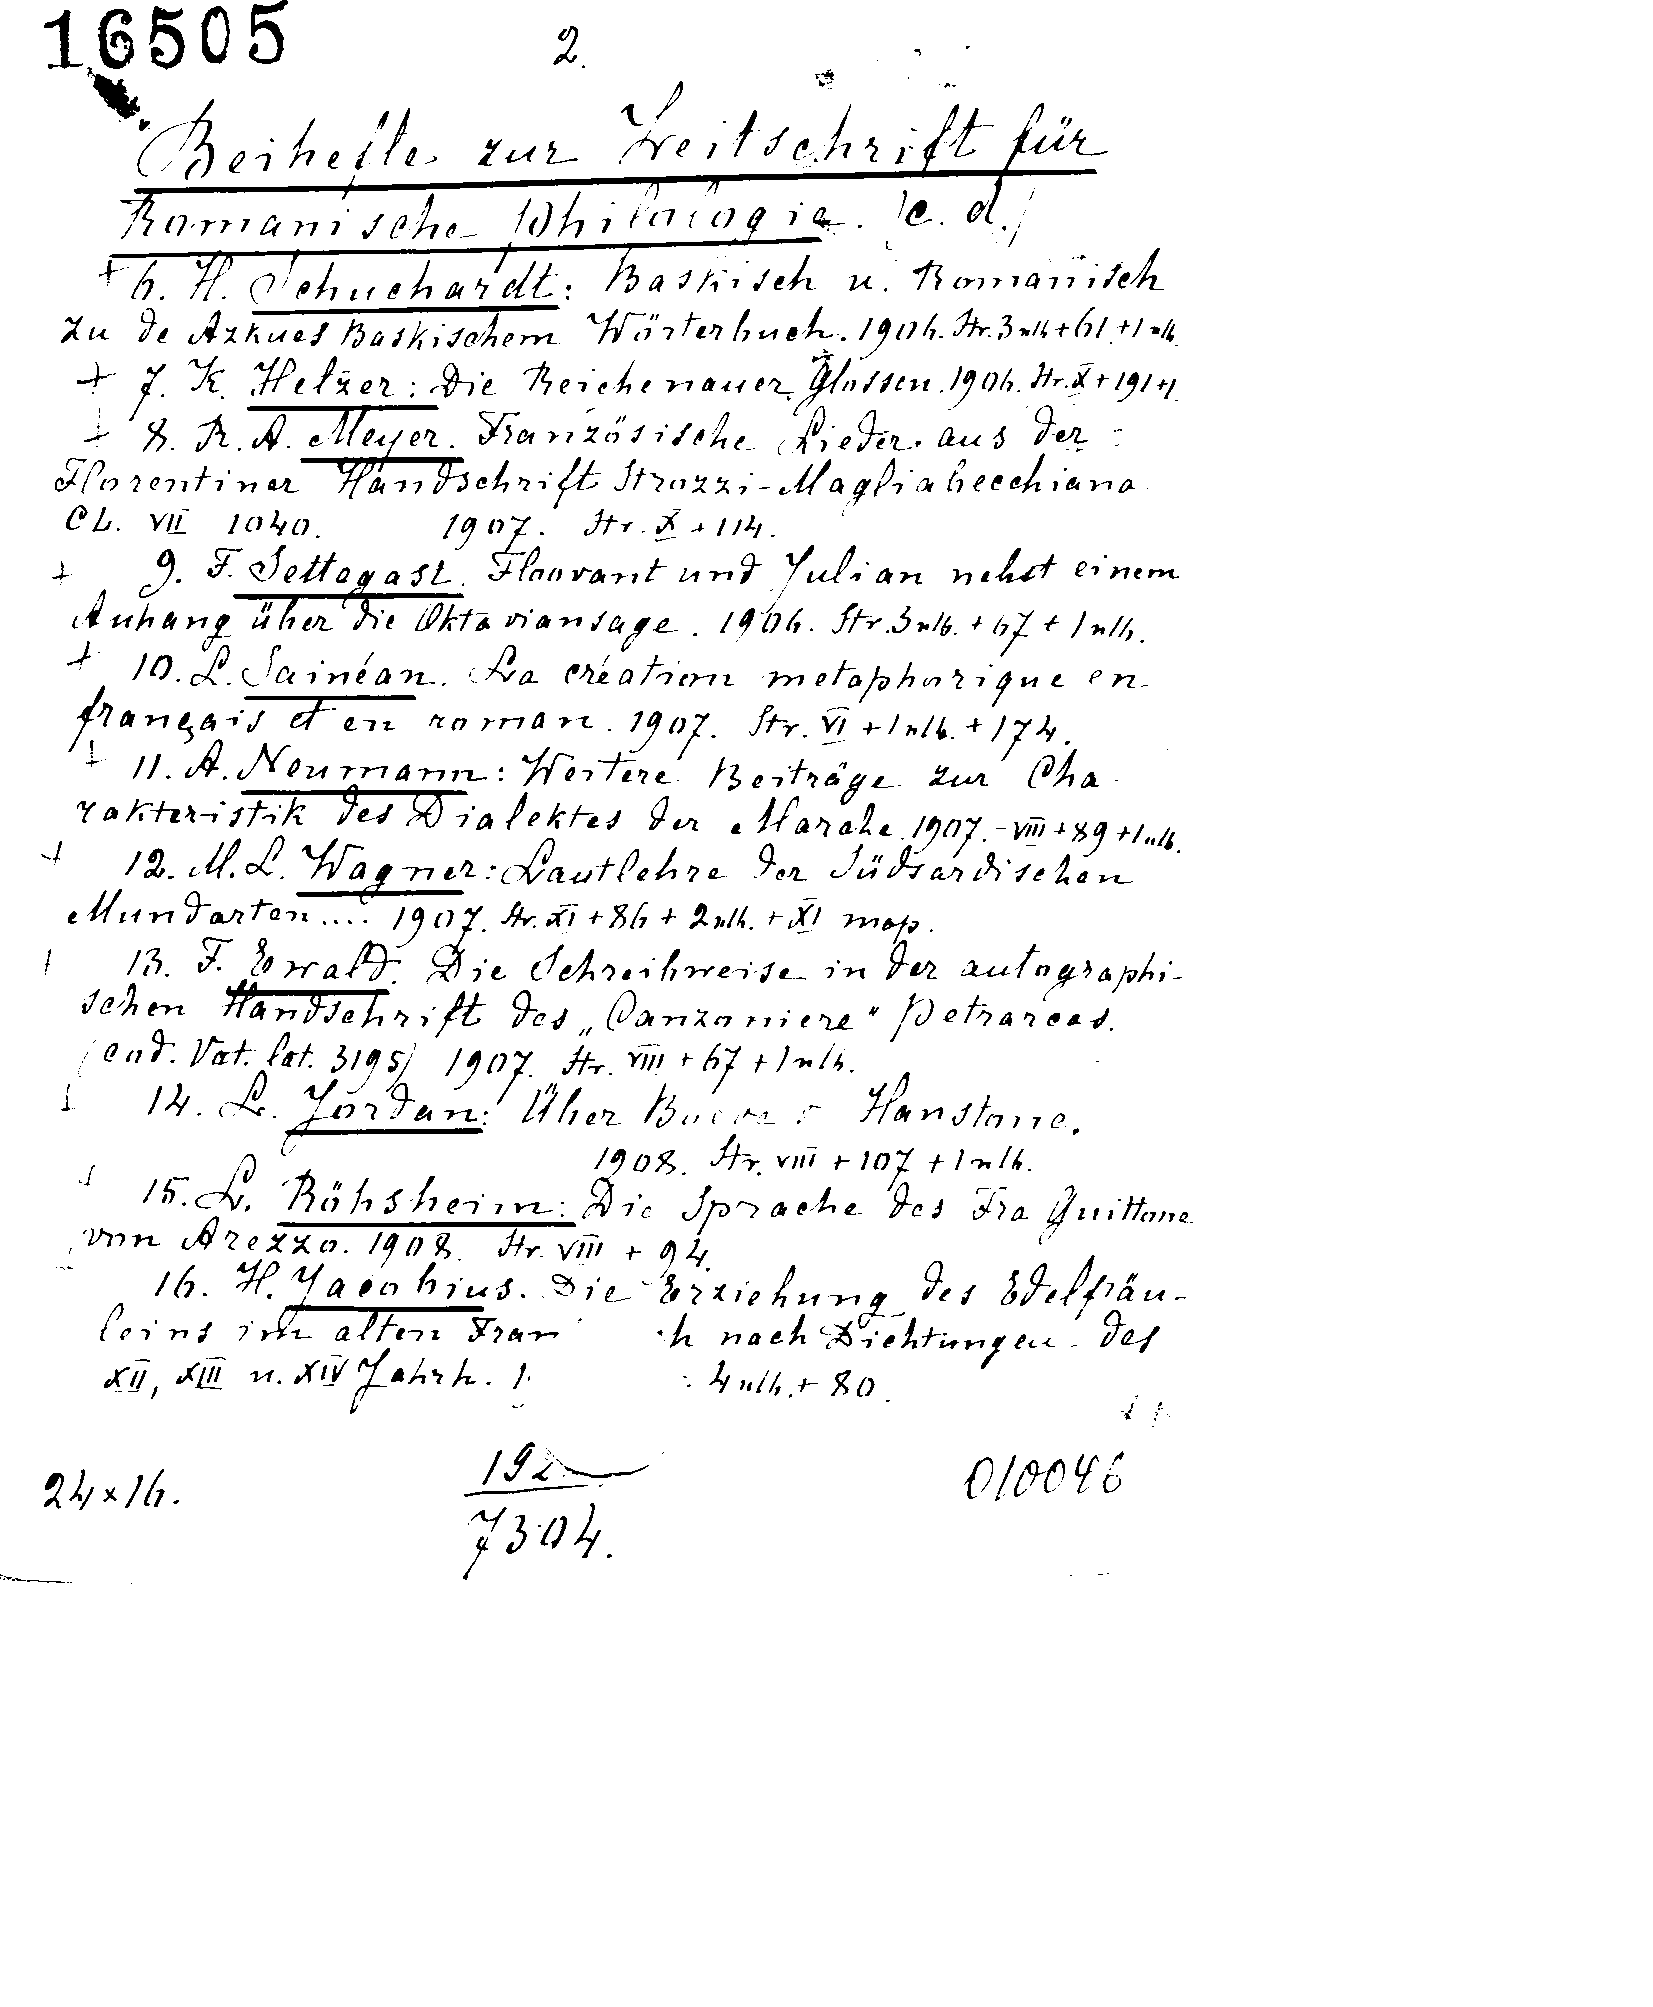 16505
2.
Beihefte zur Zeitschrift für
Romanische Philologie. (c. d.)
+ 6. H. Schuchardt: Baskisch u. Romanisch
zu de Azkues Baskischem Wörterbuch. 1906. Str. 3 nlb + 61 + 1 nlb.
+ 7. K. Hetzer: Die Reichenauer Glossen. 1906. Str. X + 191 + 1
+ 8. R. A. Meyer. Französische Lieder aus der
Florentiner Handschrift Strozzi-Magliabecchiana
CL. VII 1040. 1907. Str. X + 114.
+ 9. F. Settegast. Floovant und Julian nebst einem
Anhang über die Oktaviansage. 1906. Str. 3 nlb. + 67 + 1 nlb.
+ 10. L. Sainéan. La création metaphorique en
français et en roman. 1907. Str. VI + 1 nlb. + 174.
+ 11. A. Neumann: Weitere Beiträge zur Cha
rakteristik des Dialektes der Marche 1907. - VIII + 89 + 1 nlb.
+ 12. M. L. Wagner: Lautlehre der Südsardischen
Mundarten.... 1907. Str. XI + 86 + 2 nlb. + XI map.
13. F. Ewald. Die Schreibweise in der autographi-
schen Handschrift des „Canzoniere" Petrarcas.
(cod. Vat. lat. 3195) 1907. Str. VIII + 67 + 1 nlb.
14. L. Jordan: Über Hanstone.
1908. Str. VIII + 107 + 1 nlb.
15. L. Röhsheim: Die Sprache des Fra Guittone
von Arezzo. 1908. Str. VIII + 94.
16. H. Jacobius. Die Erziehung des Edelfräu-
leins im alten nach Dichtungen des
XII, XIII u. XIV Jahrh. 4 nlb. + 80.
24 x 16.
7304.
010046